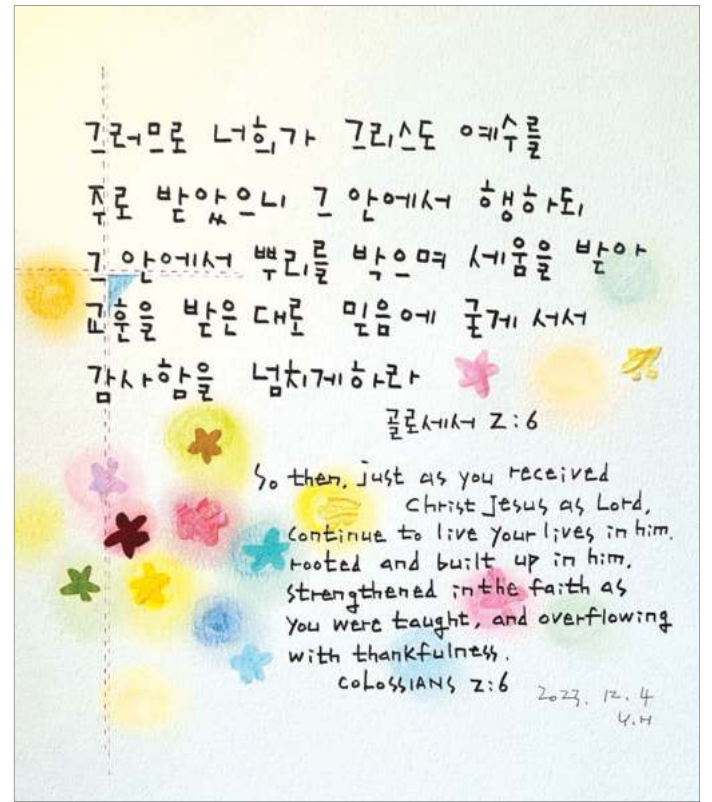 그러므로 너희가 그리스도 예수를
주로 받았으니 그 안에서 행하되,
그 안에서 뿌리를 박으며 세움을 받아
교훈을 받은 대로 믿음에 굳게 서서
감사함을 넘치게하라
골로새서 2:6
So then, just as you received
Christ Jesus as Lord,
continue to live your lives in him,
rooted and built up in him,
strengthened in the faith as
you were taught, and overflowing
with thankfulness.
COLOSSIANS 2:6
2023. 12. 4
Y.H